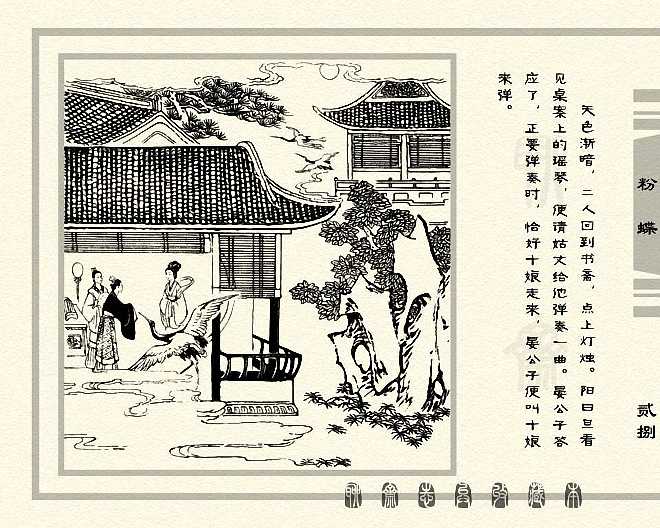 天色渐暗，二人回到书斋，点上灯烛。阳曰旦看
见桌案上的瑶琴，便请姑丈给他弹奏一曲。晏公子答
应了，正要弹奏时，恰好十娘走来，晏公子便叫十娘
来弹。
粉蝶
贰捌
聊斋志异收藏本